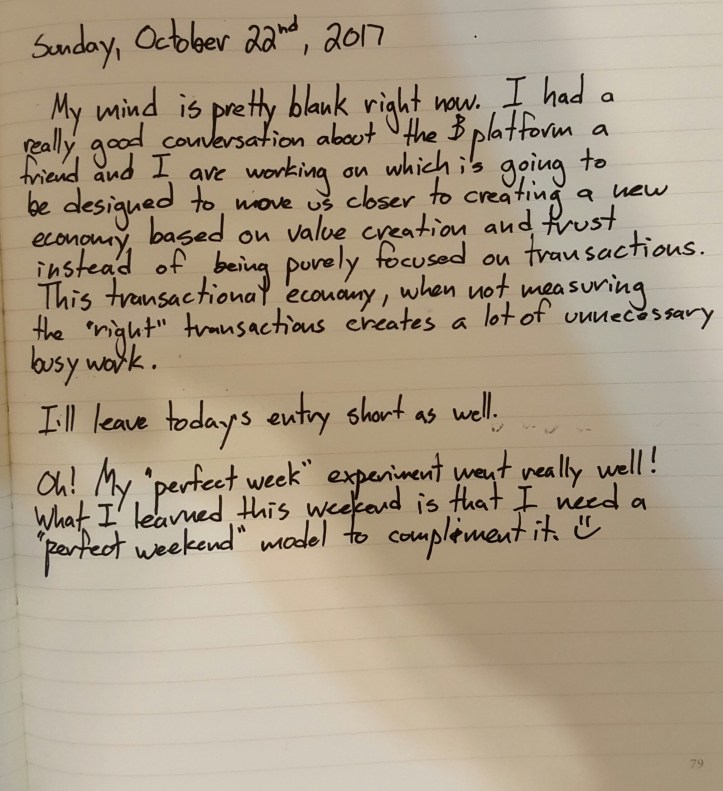 Sunday, October 22nd, 2017
My mind is pretty blank right now. I had a
really good conversation about the B platform a
friend and I are working on which is going to
be designed to move us closer to creating a new
economy based on value creation and trust
instead of being purely focused on transactions.
This transactional economy, when not measuring
the "right" transactions creates a lot of unnecessary
busy work.
I'll leave todays entry short as well.
Oh! My "perfect week" experiment went really well!
What I learned this weekend is that I need a
"perfect weekend" model to compliment it.
79